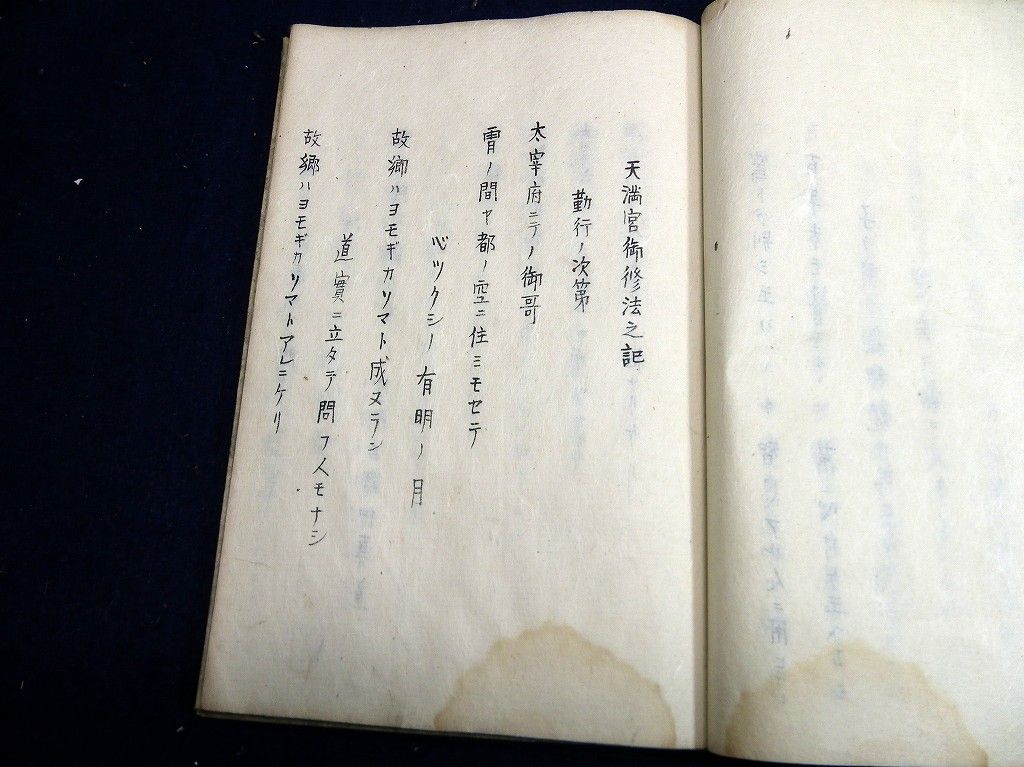 天満宮御修法之記
勤行ノ次第
太宰府ニテノ御哥
宵ノ間ヤ都ノ空ニ住ミモセテ
心ツクシノ有明ノ月
故郷ハヨモギカツマト成ヌラン
道實ニ立タテ問フ人モナシ
故郷ハヨモギカツマトアレニケリ